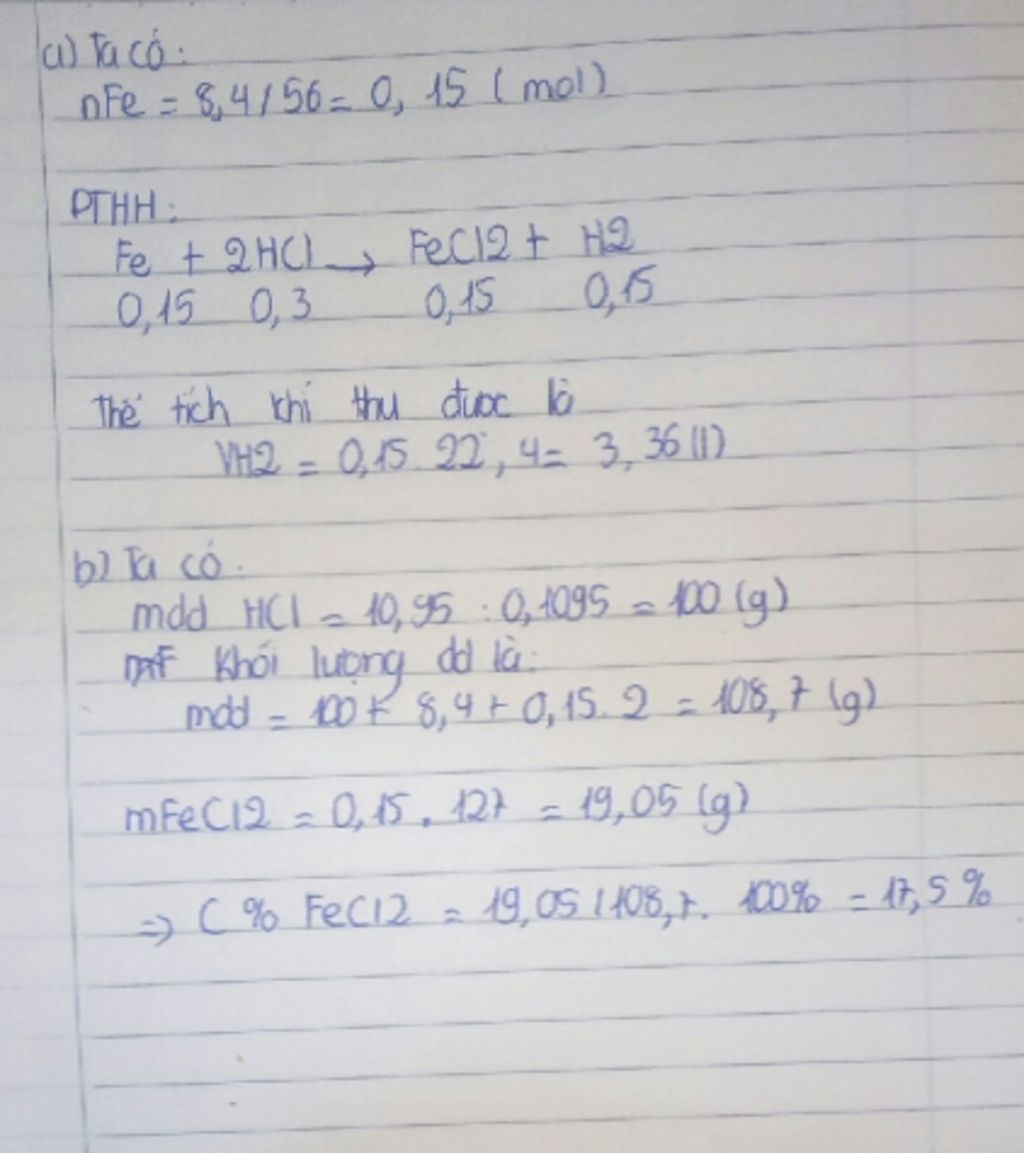 a) Ta có:
nFe = 8,4/56 = 0,15 (mol)
PTHH:
Fe + 2HCl → FeCl2 + H2
0,15 0,3 0,15 0,15
Thể tích khí thu được là
VH2 = 0,15.22,4 = 3,36 (l)
b) Ta có:
mdd HCl = 10,95 : 0,1095 = 100 (g)
Khối lượng dd là:
mdd = 100 + 8,4 + 0,15.2 = 108,7 (g)
mFeCl2 = 0,15.127 = 19,05 (g)
=> C% FeCl2 = 19,05/108,7.100% = 17,5%